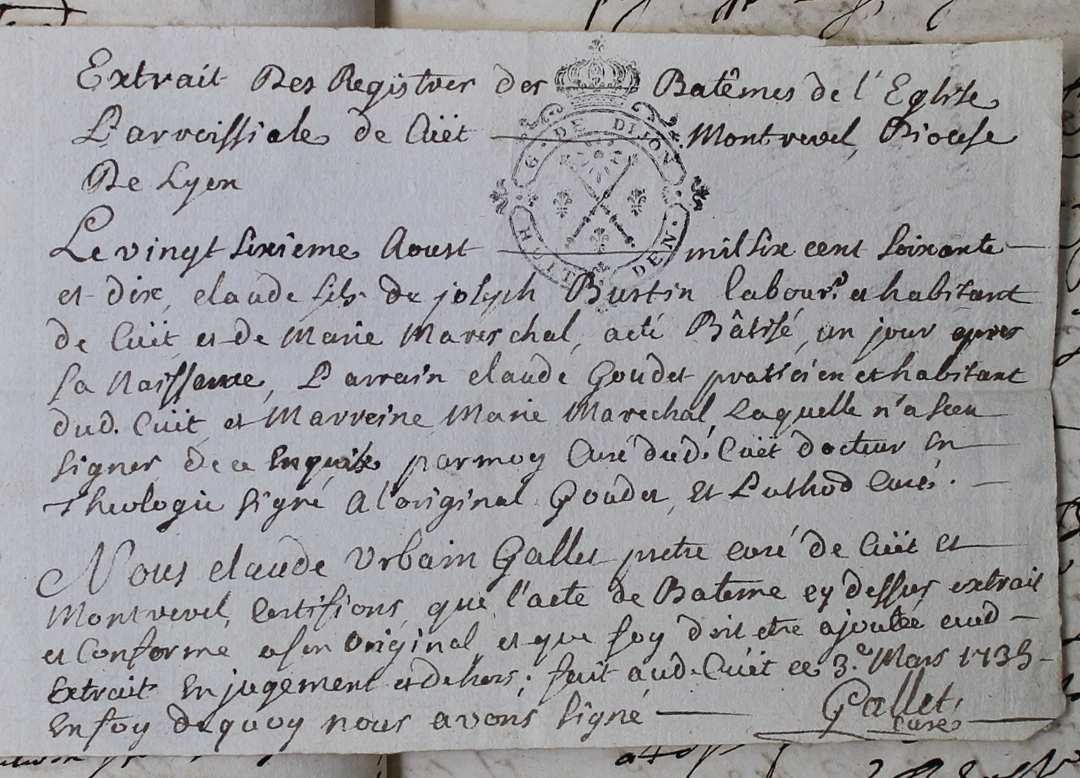 Extrait Des Registres des Batêmes de l'Eglise
Parroissiale de Cüet Montrevel, Diocese
De Lyon
G. DE DIJON
HUIT DEN.
Le vingt sixiême Aoust mil six cent soixante
et dix, claude fils de joseph Bustin labour.r et habitant
de Cüet et de Marie Mareschal, a eté Bâtisé, un jour apres
sa Naissance, Parrain claude Goudet praticien et habitant
dud. Cüet et Marreine Marie Marechal, Laquelle n'a sceu
signer de ce Enquise par moy Curé dud. Cüet docteur en
Theologie signé A l'original Goudet, et Puthod Curé.
Nous claude Urbain Gallet pretre curé de Cüet et
Montrevel, Certifions, que l'acte de Bateme cy dessus extrait
et Conforme a son Original, et que foy doit etre ajoutée aud
Extrait En jugement et dehors; fait aud. Cüet ce 3.e Mars 1735
En foy de quoy nous avons signé
Gallet
curé